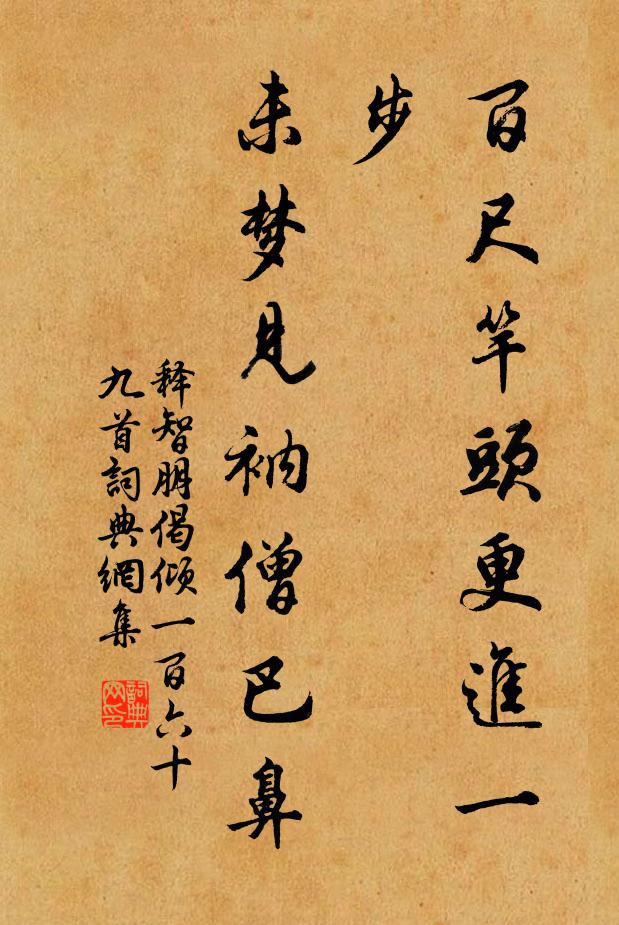 百尺竿頭更進一
步
未梦見衲僧巴鼻
释智朋偈倾一百六十
九首詞典網集
詞典网印